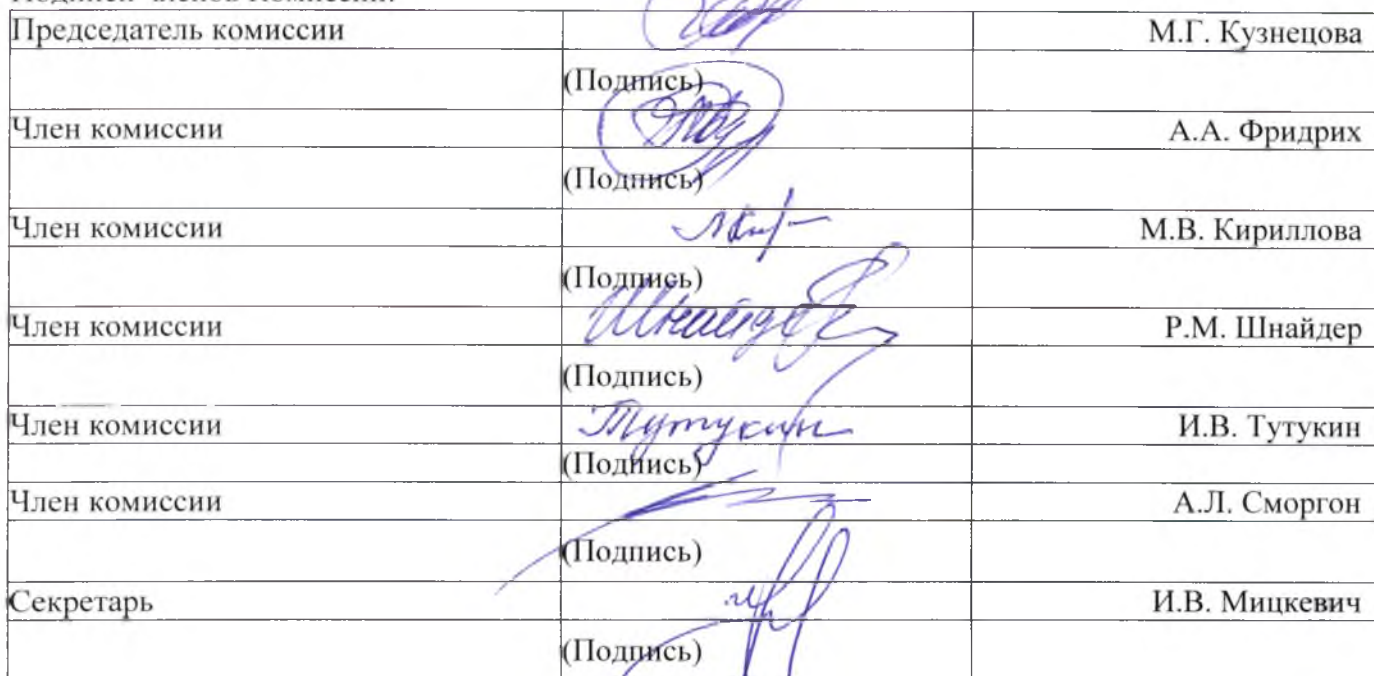 Председатель комиссии М.Г. Кузнецова
(Подпись)
Член комиссии А.А. Фридрих
(Подпись)
Член комиссии М.В. Кириллова
(Подпись)
Член комиссии Шнайдер Р.М. Шнайдер
(Подпись)
Член комиссии Тутукин И.В. Тутукин
(Подпись)
Член комиссии А.Л. Сморгон
(Подпись)
Секретарь И.В. Мицкевич
(Подпись)